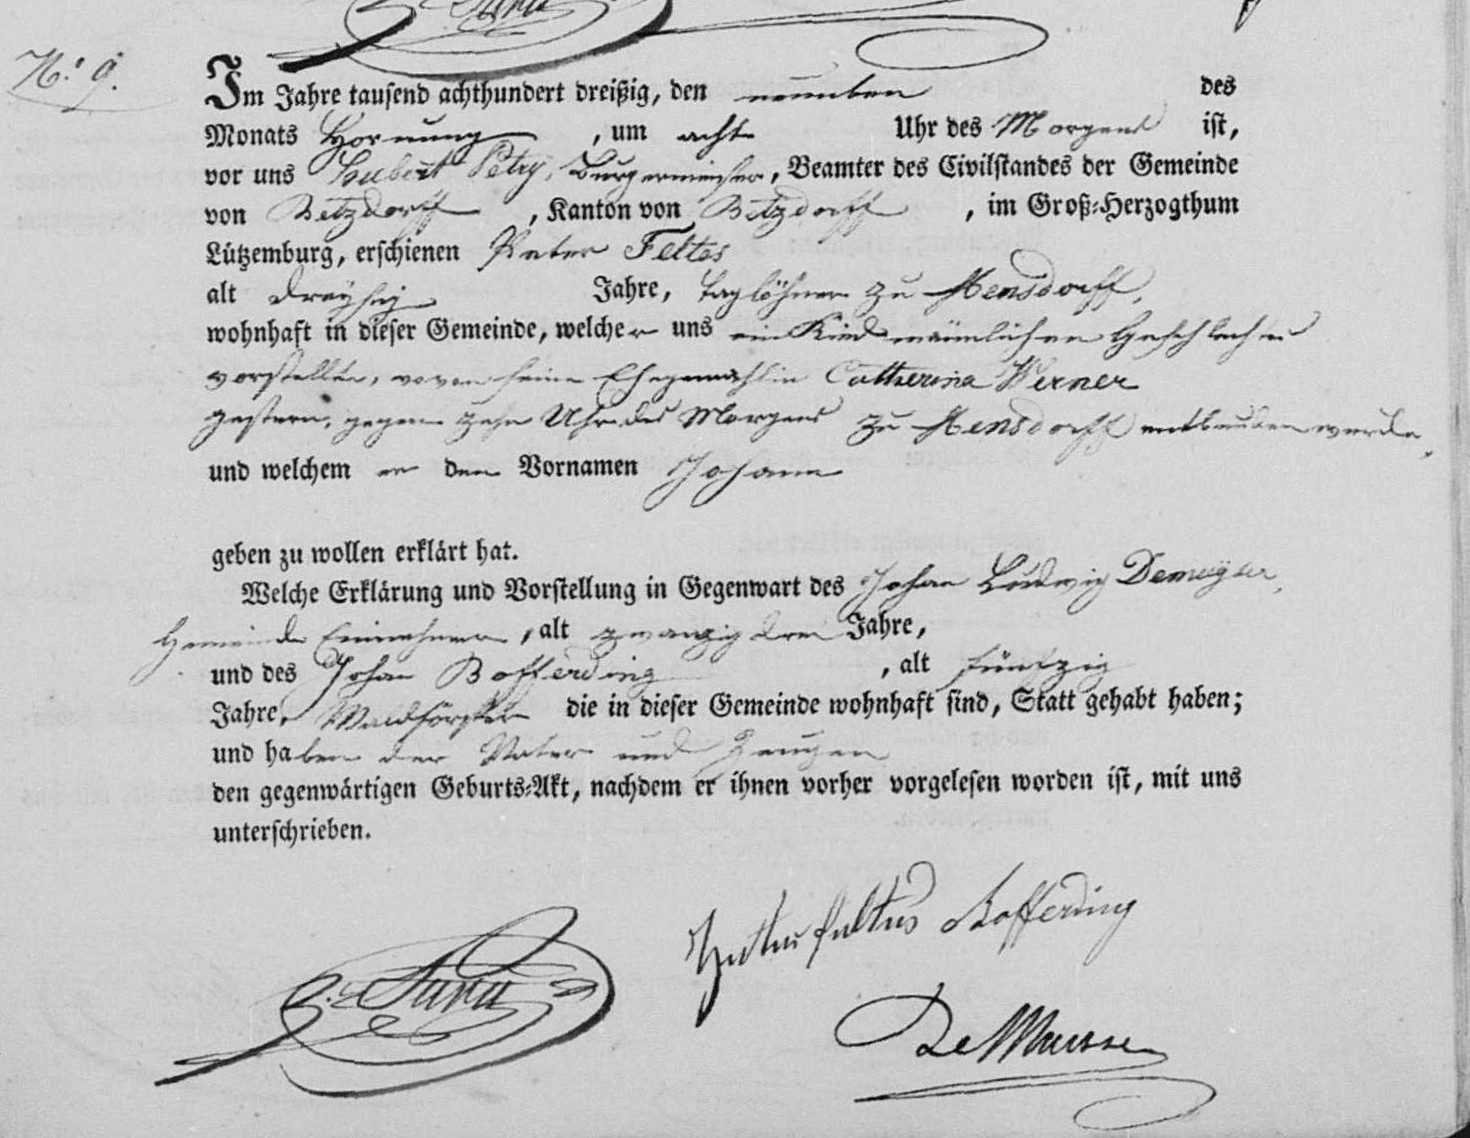 N.º 9.
Im Jahre tausend achthundert dreißig, den neunten des
Monats Hornung, um acht Uhr des Morgens ist,
vor uns Hubert Petry, Burgermeister, Beamter des Civilstandes der Gemeinde
von Betzdorff, Kanton von Betzdorff, im Groß-Herzogthum
Lützemburg, erschienen Peter Feltes
alt dreyßig Jahre, Taglöhner zu Mensdorff,
wohnhaft in dieser Gemeinde, welcher uns ein Kind männlichen Geschlechts
vorstellte, wovon seine Ehegemahlin Catherina Werner
gestern, gegen zehn Uhr des Morgens zu Mensdorff entbunden wurde,
und welchem er den Vornamen Johann
geben zu wollen erklärt hat.
Welche Erklärung und Vorstellung in Gegenwart des Johan Ludwig Demuyser,
Gemeinde Einnehmer, alt zwanzig drei Jahre,
und des Johan Bofferding, alt fünfzig
Jahre, Waldförster die in dieser Gemeinde wohnhaft sind, Statt gehabt haben;
und haben der Vater und Zeugen
den gegenwärtigen Geburts-Akt, nachdem er ihnen vorher vorgelesen worden ist, mit uns
unterschrieben.
Peter feltes Bofferding